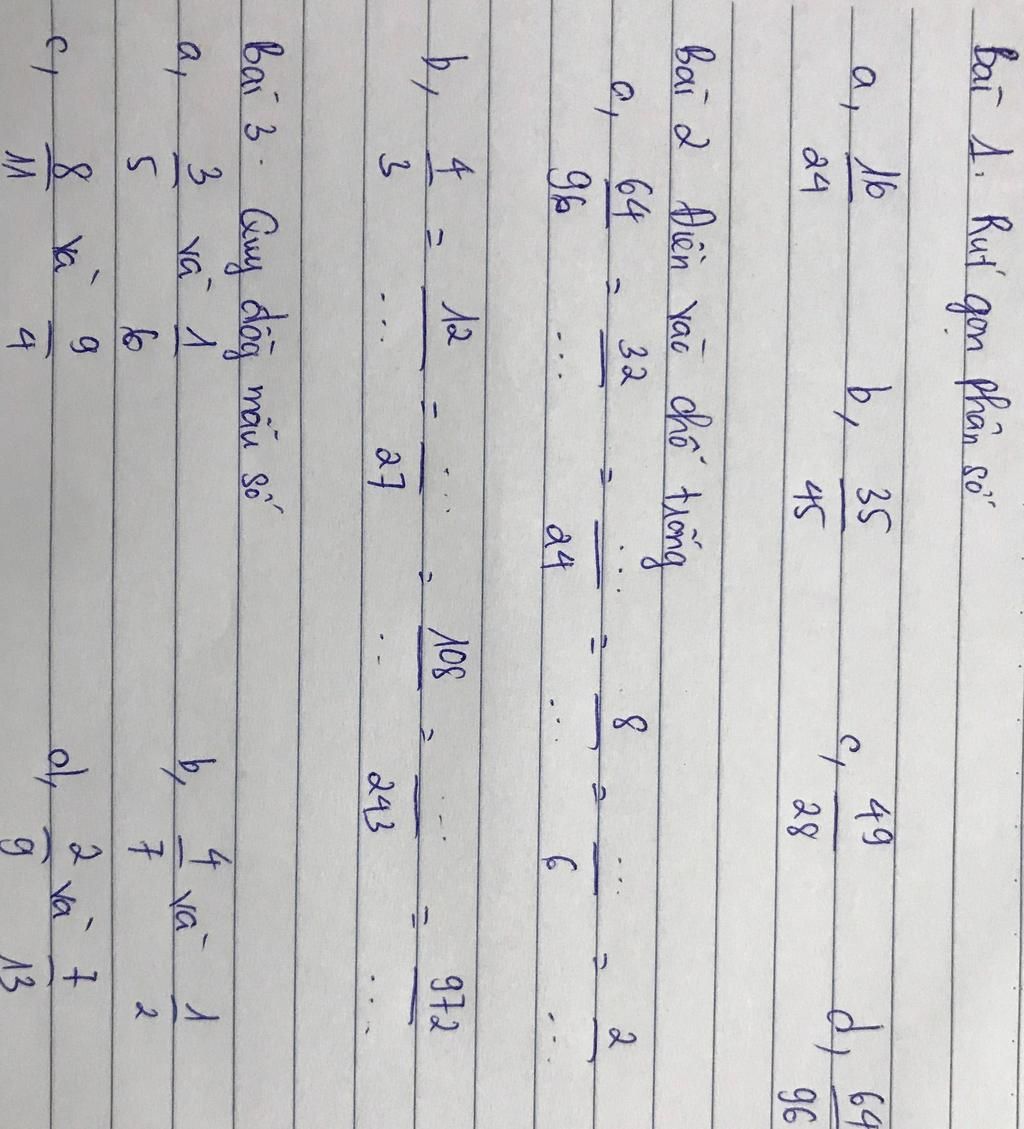 Bài 1. Rút gọn phân số
a, 16/24 b, 35/45 c, 49/28 d, 64/96
Bài 2 Điền vào chỗ trống
a, 64/96 = 32/... = .../24 = 8/... = .../6 = 2/...
b, 4/3 = 12/... = .../27 = 108/... = .../243 = 972/...
Bài 3. Quy đồng mẫu số
a, 3/5 và 1/6 b, 4/7 và 1/2
c, 8/11 và 9/4 d, 2/9 và 7/13